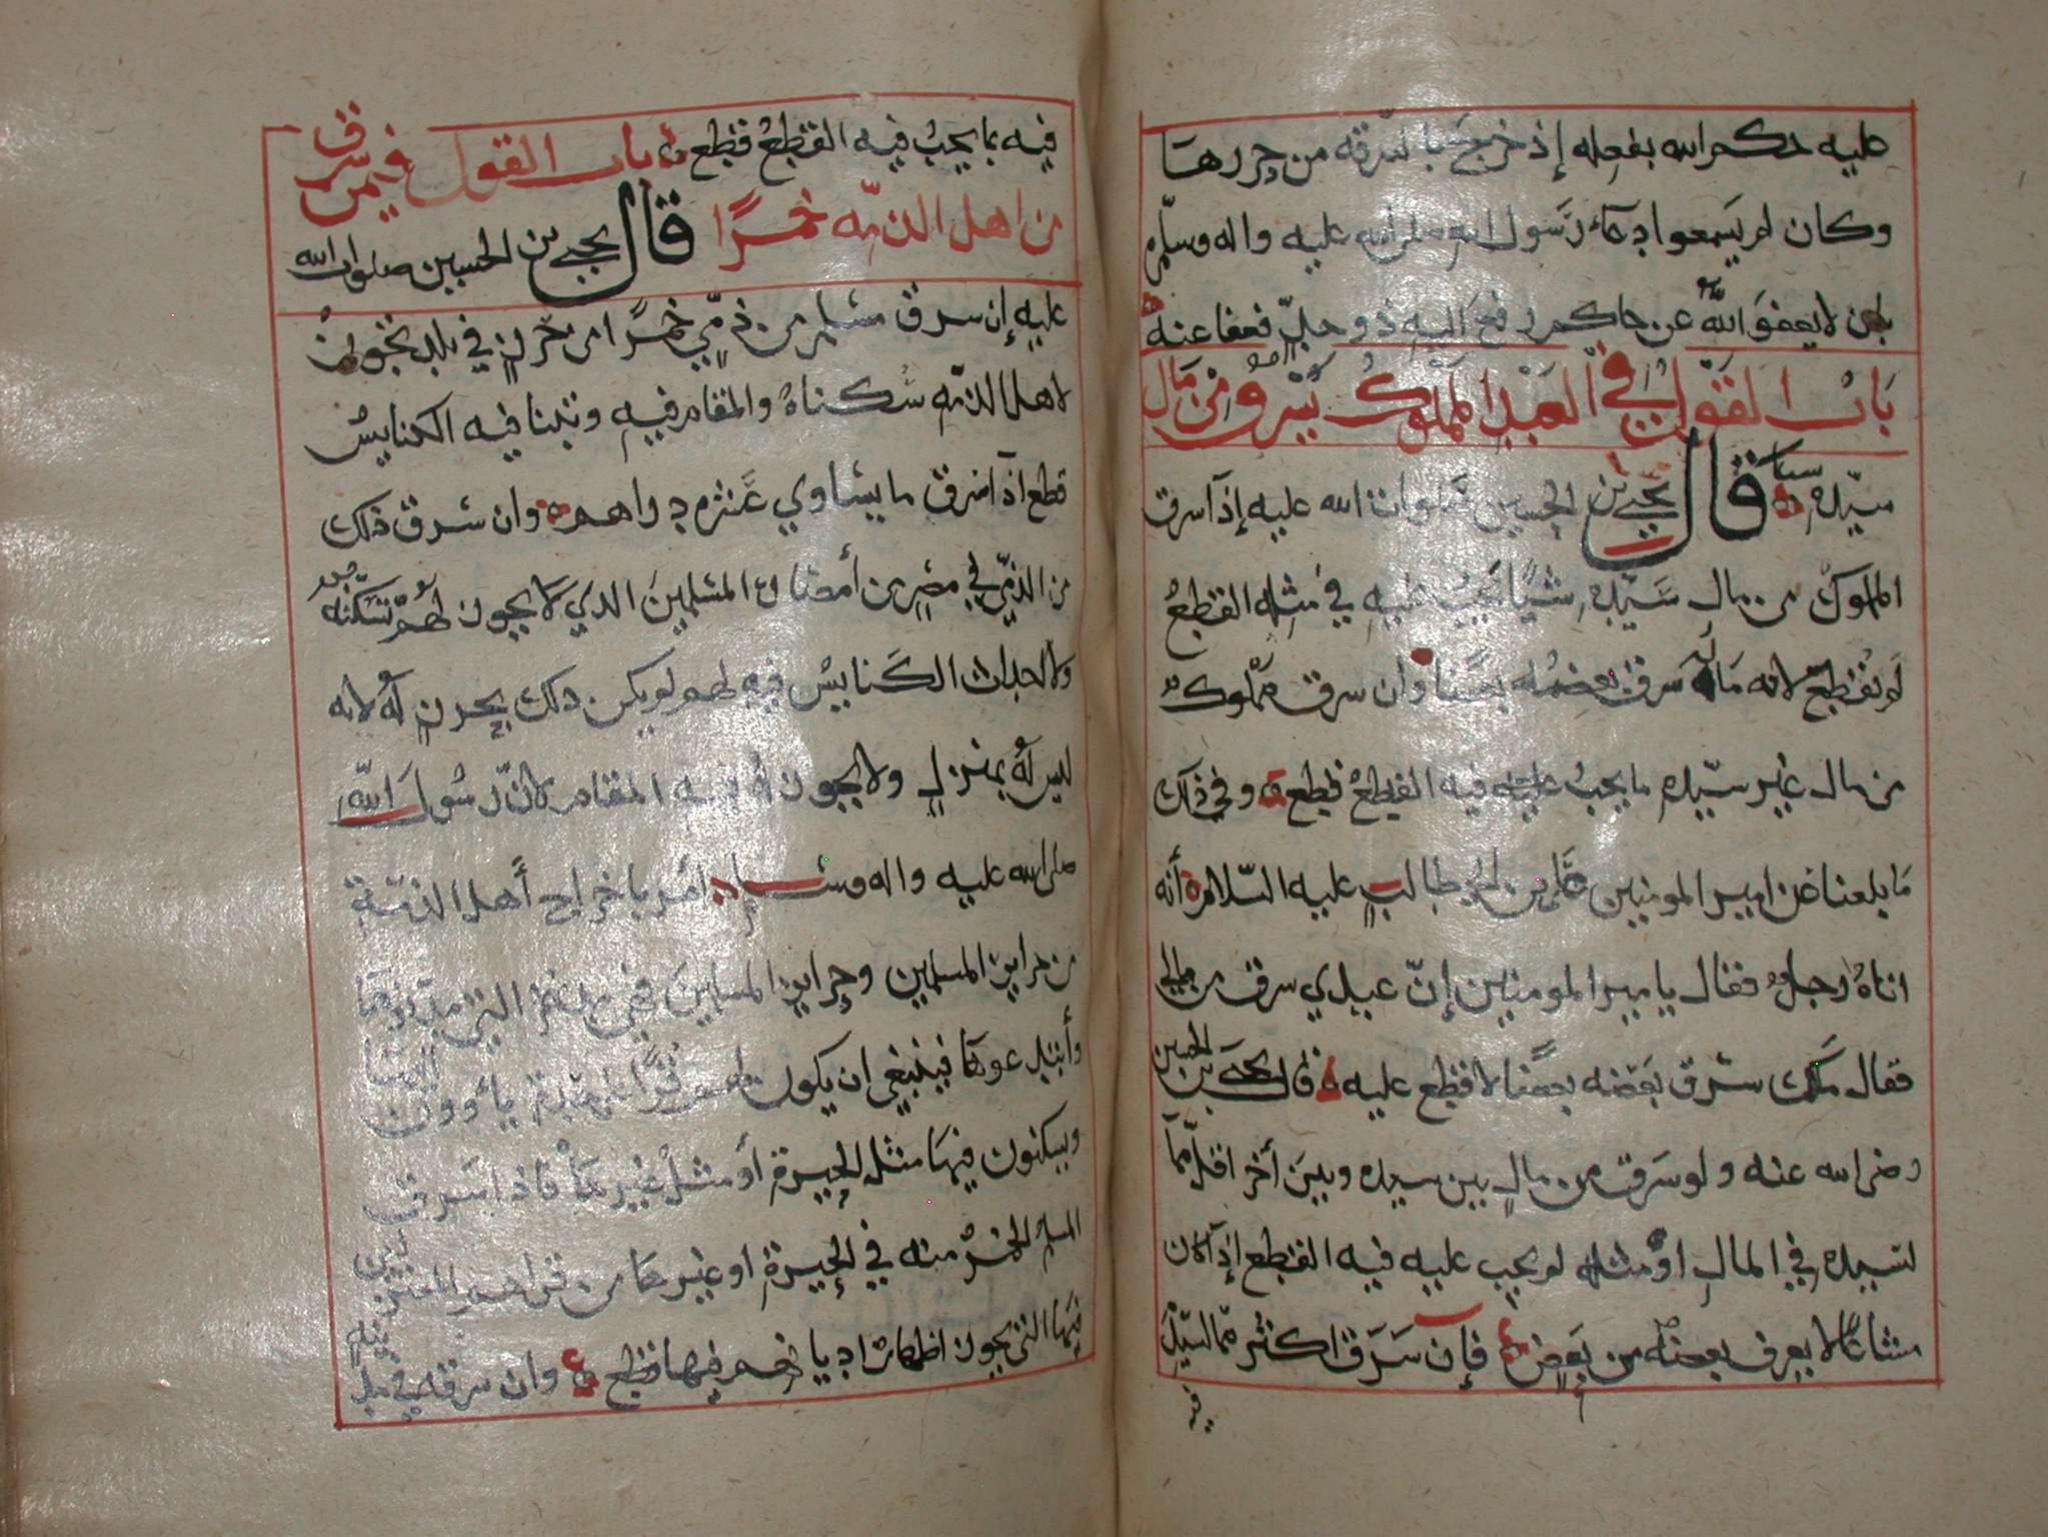 عليه حكم الله بفعله إذ خرج بالسرقة من حررها
وكان لم يسمعوا دعاء رسول الله صلى الله عليه واله وسلم
بان لا يعفو الله عن حاكم رفع اليه ذو حد فعفا عنه
باب القول في العبد المملوك يسرق من مال
سيده قال يحيى بن الحسين صلوات الله عليه إذا سرق
المملوك من مال سيده شيئا يجب عليه في مثله القطع
لم يقطع لانه ماله سرق بعضه بعضا وان سرق مملوك
من مال غير سيده ما يجب عليه فيه القطع قطع وفي ذلك
ما بلغنا عن امير المومنين علي بن ابي طالب عليه السلام أنه
اتاه رجل فقال يا مير المومنين إن عبدي سرق من مالي
فقال مالك سرق بعضه بعضا لا قطع عليه قال يحيى بن الحسين
رضي الله عنه ولو سرق من مال بين سيده وبين أخر اقل مما
لسيده في المال أو مثله لم يجب عليه فيه القطع إذا كان
مشاعا لا يعرف بعضه من بعض فإن سرق اكثر مما لسيده
فيه بما يجب فيه القطع قطع باب القول فيمن سرق
من اهل الذمه خمرا قال يحيى بن الحسين صلوات الله
عليه إن سرق مسلم من ذمي خمرا من حرز في بلد يجوز
لاهل الذمه سكناه والمقام فيه وتبنا فيه الكنايس
قطع اذا سرق ما يساوي عشره دراهم وان سرق ذلك
من الذمي في مصر من أمصار المسلمين الذي لا يجوز لهم سكنه
ولا احداث الكنايس فيه لهم لم يكن ذلك بحرز له لانه
ليس له بمنزل ولا يجوز له فيه المقام لان رسول الله
صلى الله عليه واله وسلم امر باخراج أهل الذمة
من جراين المسلمين وجراين المسلمين فهي التي
وأبتدعوها فينبغي ان يكون لهم يأوون اليها
ويسكنون فيها مثل الحيرة أو مثل غيرها فاذا سرق
المسلم الخمر منه في الحيرة او غيرها من قراهم
فيها التي يجوز اظهار اديانهم فيها قطع وان سرقه في بلد